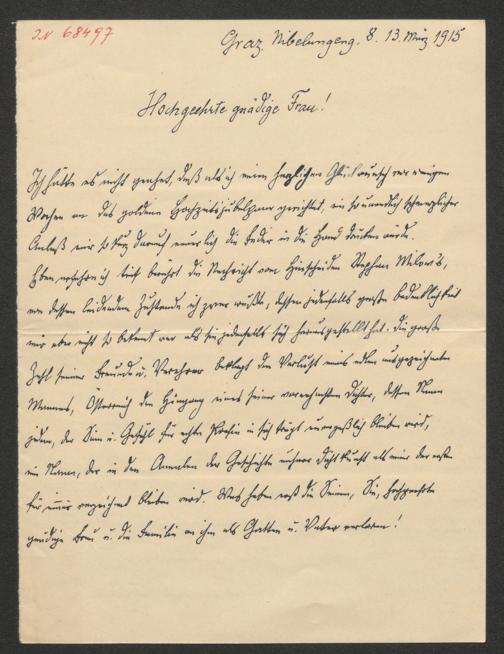 IN 68497
Graz. Nibelungeng. 8. 13. März 1915
Hochgeehrte gnädige Frau!
Ich hätte es nicht geahnt, daß als ich meinen herzlichen Glückwunsch vor wenigen
Wochen an das goldene Hochzeitsjubelpaar gerichtet, ein so unendlich schmerzlicher
Anlaß mir so kurz darnach neuerlich die Feder in die Hand drücken würde.
Eben erfahre ich tief berührt die Nachricht vom Hinscheiden Stephan Milow's,
von dessen leidendem Zustande ich zwar wußte, dessen jedenfalls große Bedenklichkeit
mir aber nicht so bekannt war als sie jedenfalls sich herausgestellt hat. Die große
Zahl seiner Freunde u. Verehrer beklagt den Verlust eines edlen ausgezeichneten
Mannes, Österreich den Hingang eines seiner vornehmsten Dichter, dessen Name
jedem, der Sinn u. Gefühl für echte Poesie in sich trägt unvergeßlich bleiben wird,
ein Name, der in den Annalen der Geschichte unserer Dichtkunst als einer der ersten
für immer verzeichnet bleiben wird. Was haben erst die Seinen, Sie, hochgeehrte
gnädige Frau u. die Familie an ihm als Gatten u. Vater verloren!